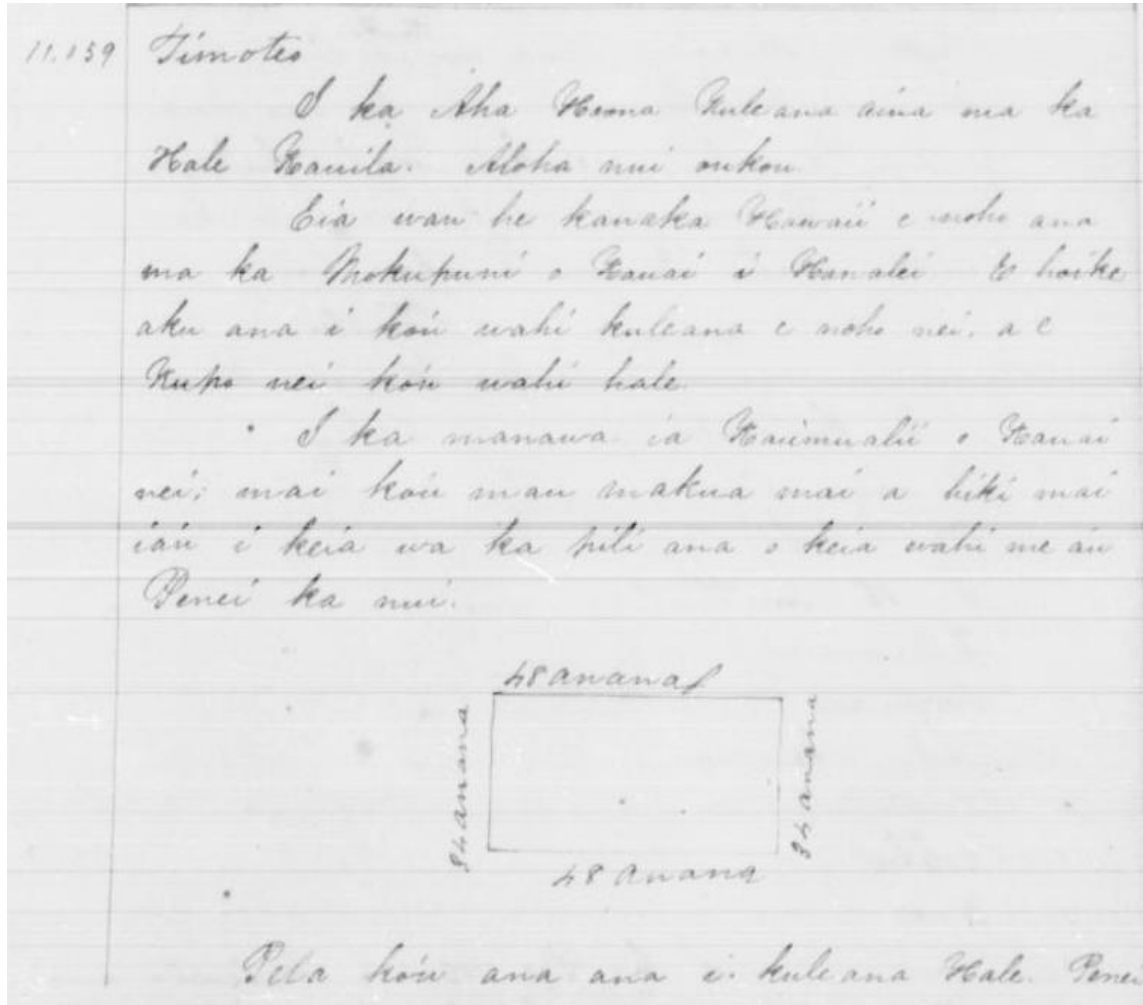 11.059 Timoteo
I ka Aha Hoona Kuleana aina ma ka
Hale Kauila. Aloha nui oukou.
Eia wau he kanaka Hawaii e noho ana
ma ka Mokupuni o Kauai i Hanalei E hoike
aku ana i ko'u wahi kuleana e noho nei, a e
Kupo nei ko'u wahi hale.
I ka manawa ia Kaumualii o Kauai
nei; mai ko'u mau makua mai a hiki mai
ia'u i keia wa ka pili ana o keia wahi me a'u
Penei ka nui.
48 anana
34 anana
34 anana
48 anana
Pela ko'u ana ana i kuleana Hale. Penei